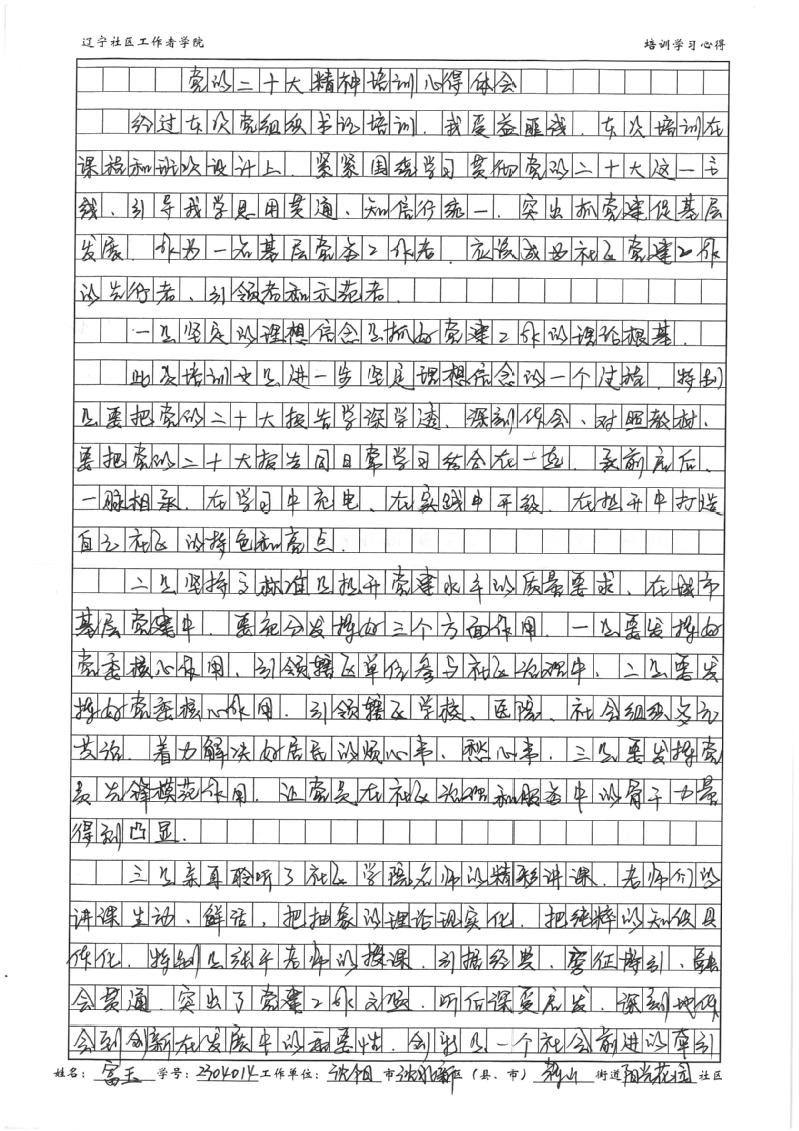 辽宁社区工作者学院 培训学习心得
党的二十大精神培训心得体会
经过本次党组织书记培训，我受益匪浅，本次培训在
课程和班次设计上，紧紧围绕学习贯彻党的二十大这一主
线、引导我学思用贯通、知信行统一，突出抓党建促基层
发展，作为一名基层党务工作者，应该成为社区党建工作
的先行者、引领者和示范者。
一是坚定的理想信念是抓好党建工作的理论根基。
此次培训也是进一步坚定理想信念的一个过程，特别
是要把党的二十大报告学深学透、深刻体会、对照教材、
要把党的二十大报告同日常学习结合在一起，承前启后、
一脉相承，在学习中充电、在实践中升级，在提升中打造
自己社区的特色和亮点。
二是坚持高标准是提升党建水平的质量要求、在城市
基层党建中，要充分发挥好三个方面作用，一是要发挥好
党委核心作用、引领辖区单位参与社区治理中，二是要发
挥好党委核心作用，引领辖区学校、医院、社会组织多元
共治，着力解决好居民的烦心事、愁心事，三是要发挥党
员先锋模范作用，让党员在社区治理和服务中的骨干力量
得到凸显。
三是亲耳聆听了社区学院名师的精彩讲课，老师们的
讲课生动、鲜活，把抽象的理论现实化，把纯粹的知识具
体化，特别是张平老师的授课，引据经典，旁征博引、融
会贯通，突出了党建工作，听后深受启发，深刻地体
会到创新在发展中的重要性，创新是一个社会前进的牵引
姓名：富玉 学号：2304014 工作单位：沈阳市沈北新区（县、市） 街道阳光花园社区